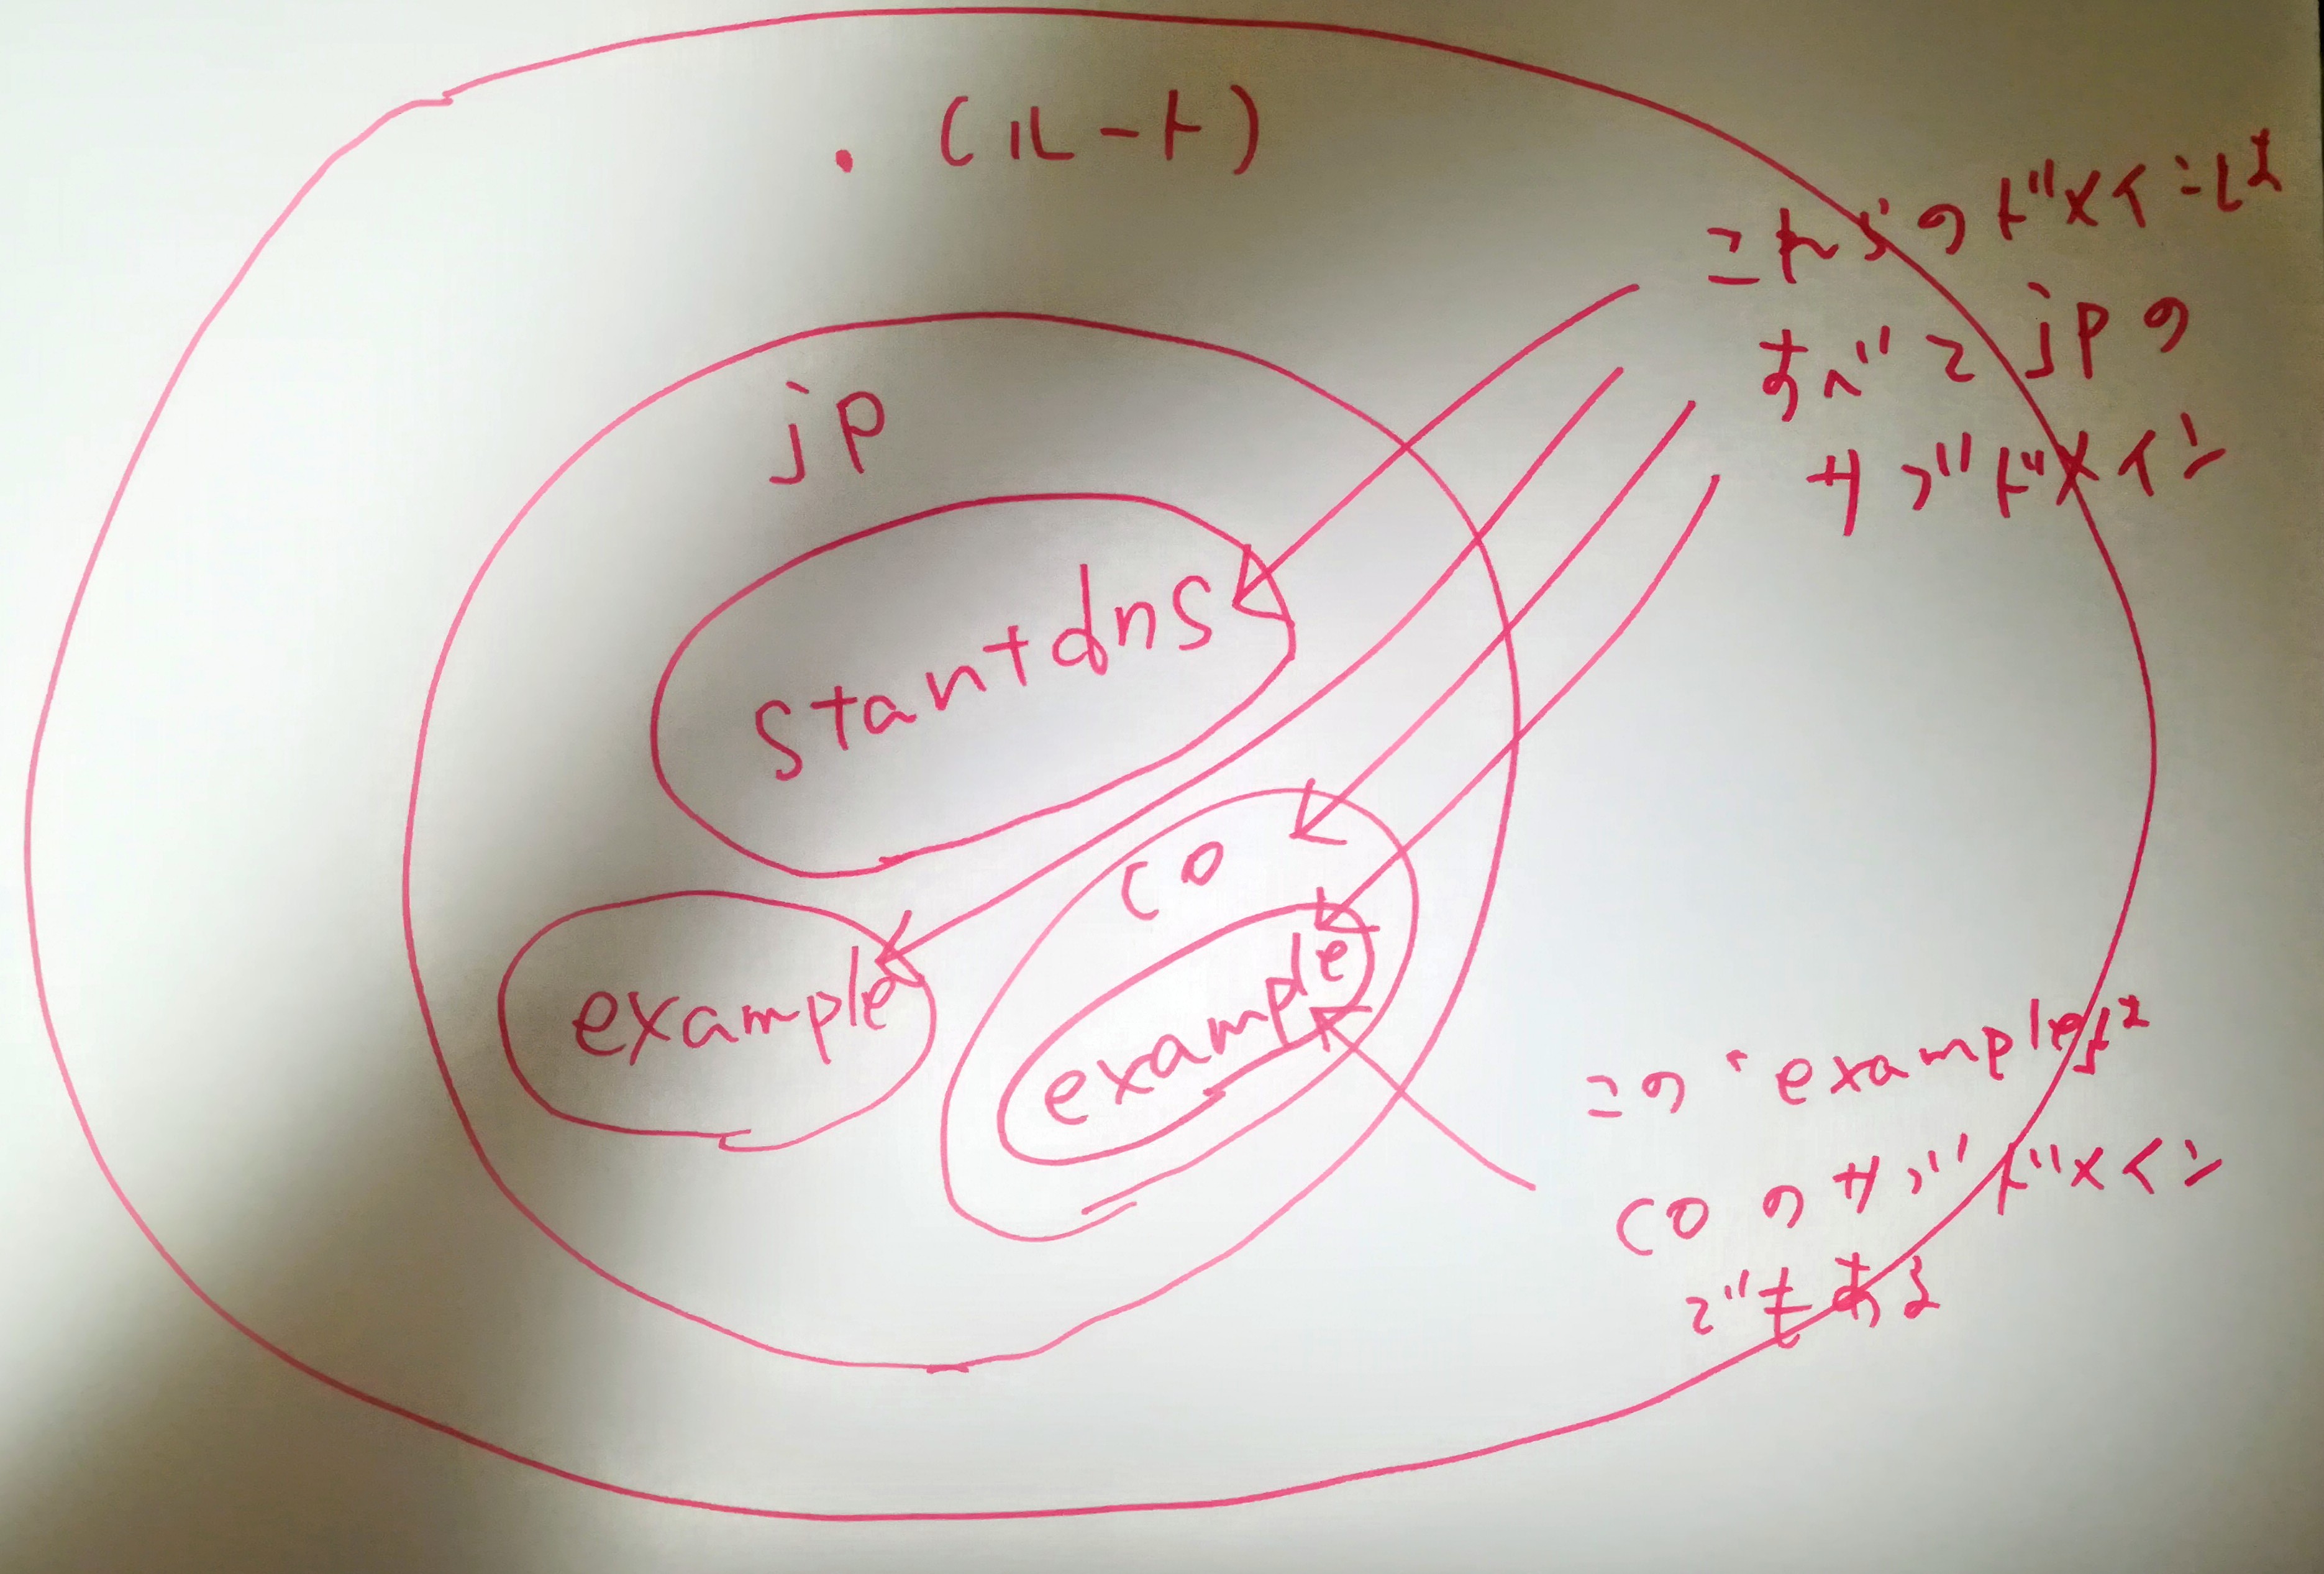 .（ルート）
これらのドメインは
すべてjpの
サブドメイン
jp
stantdns
co
example
example
この・exampleは
coのサブドメイン
でもある